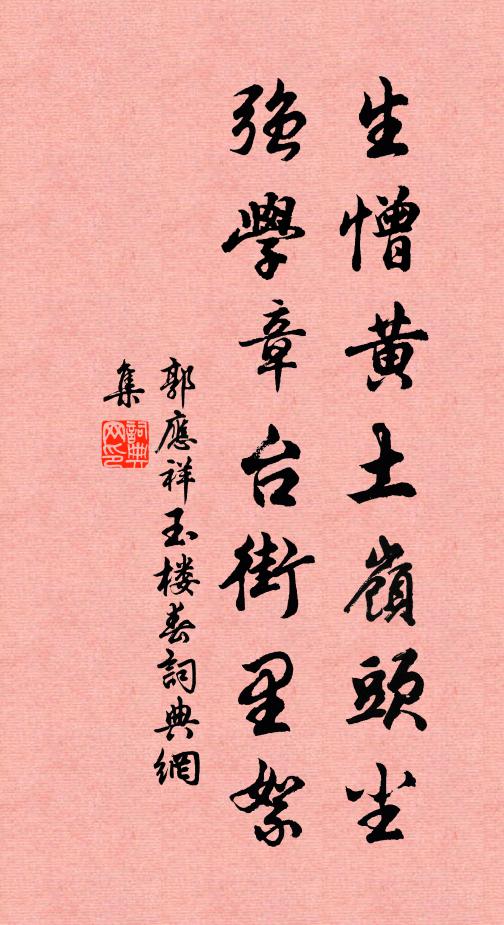 生憎黄土嶺頭尘
强學章台街里絮
郭應祥玉楼春詞典網
集
詞典
网印